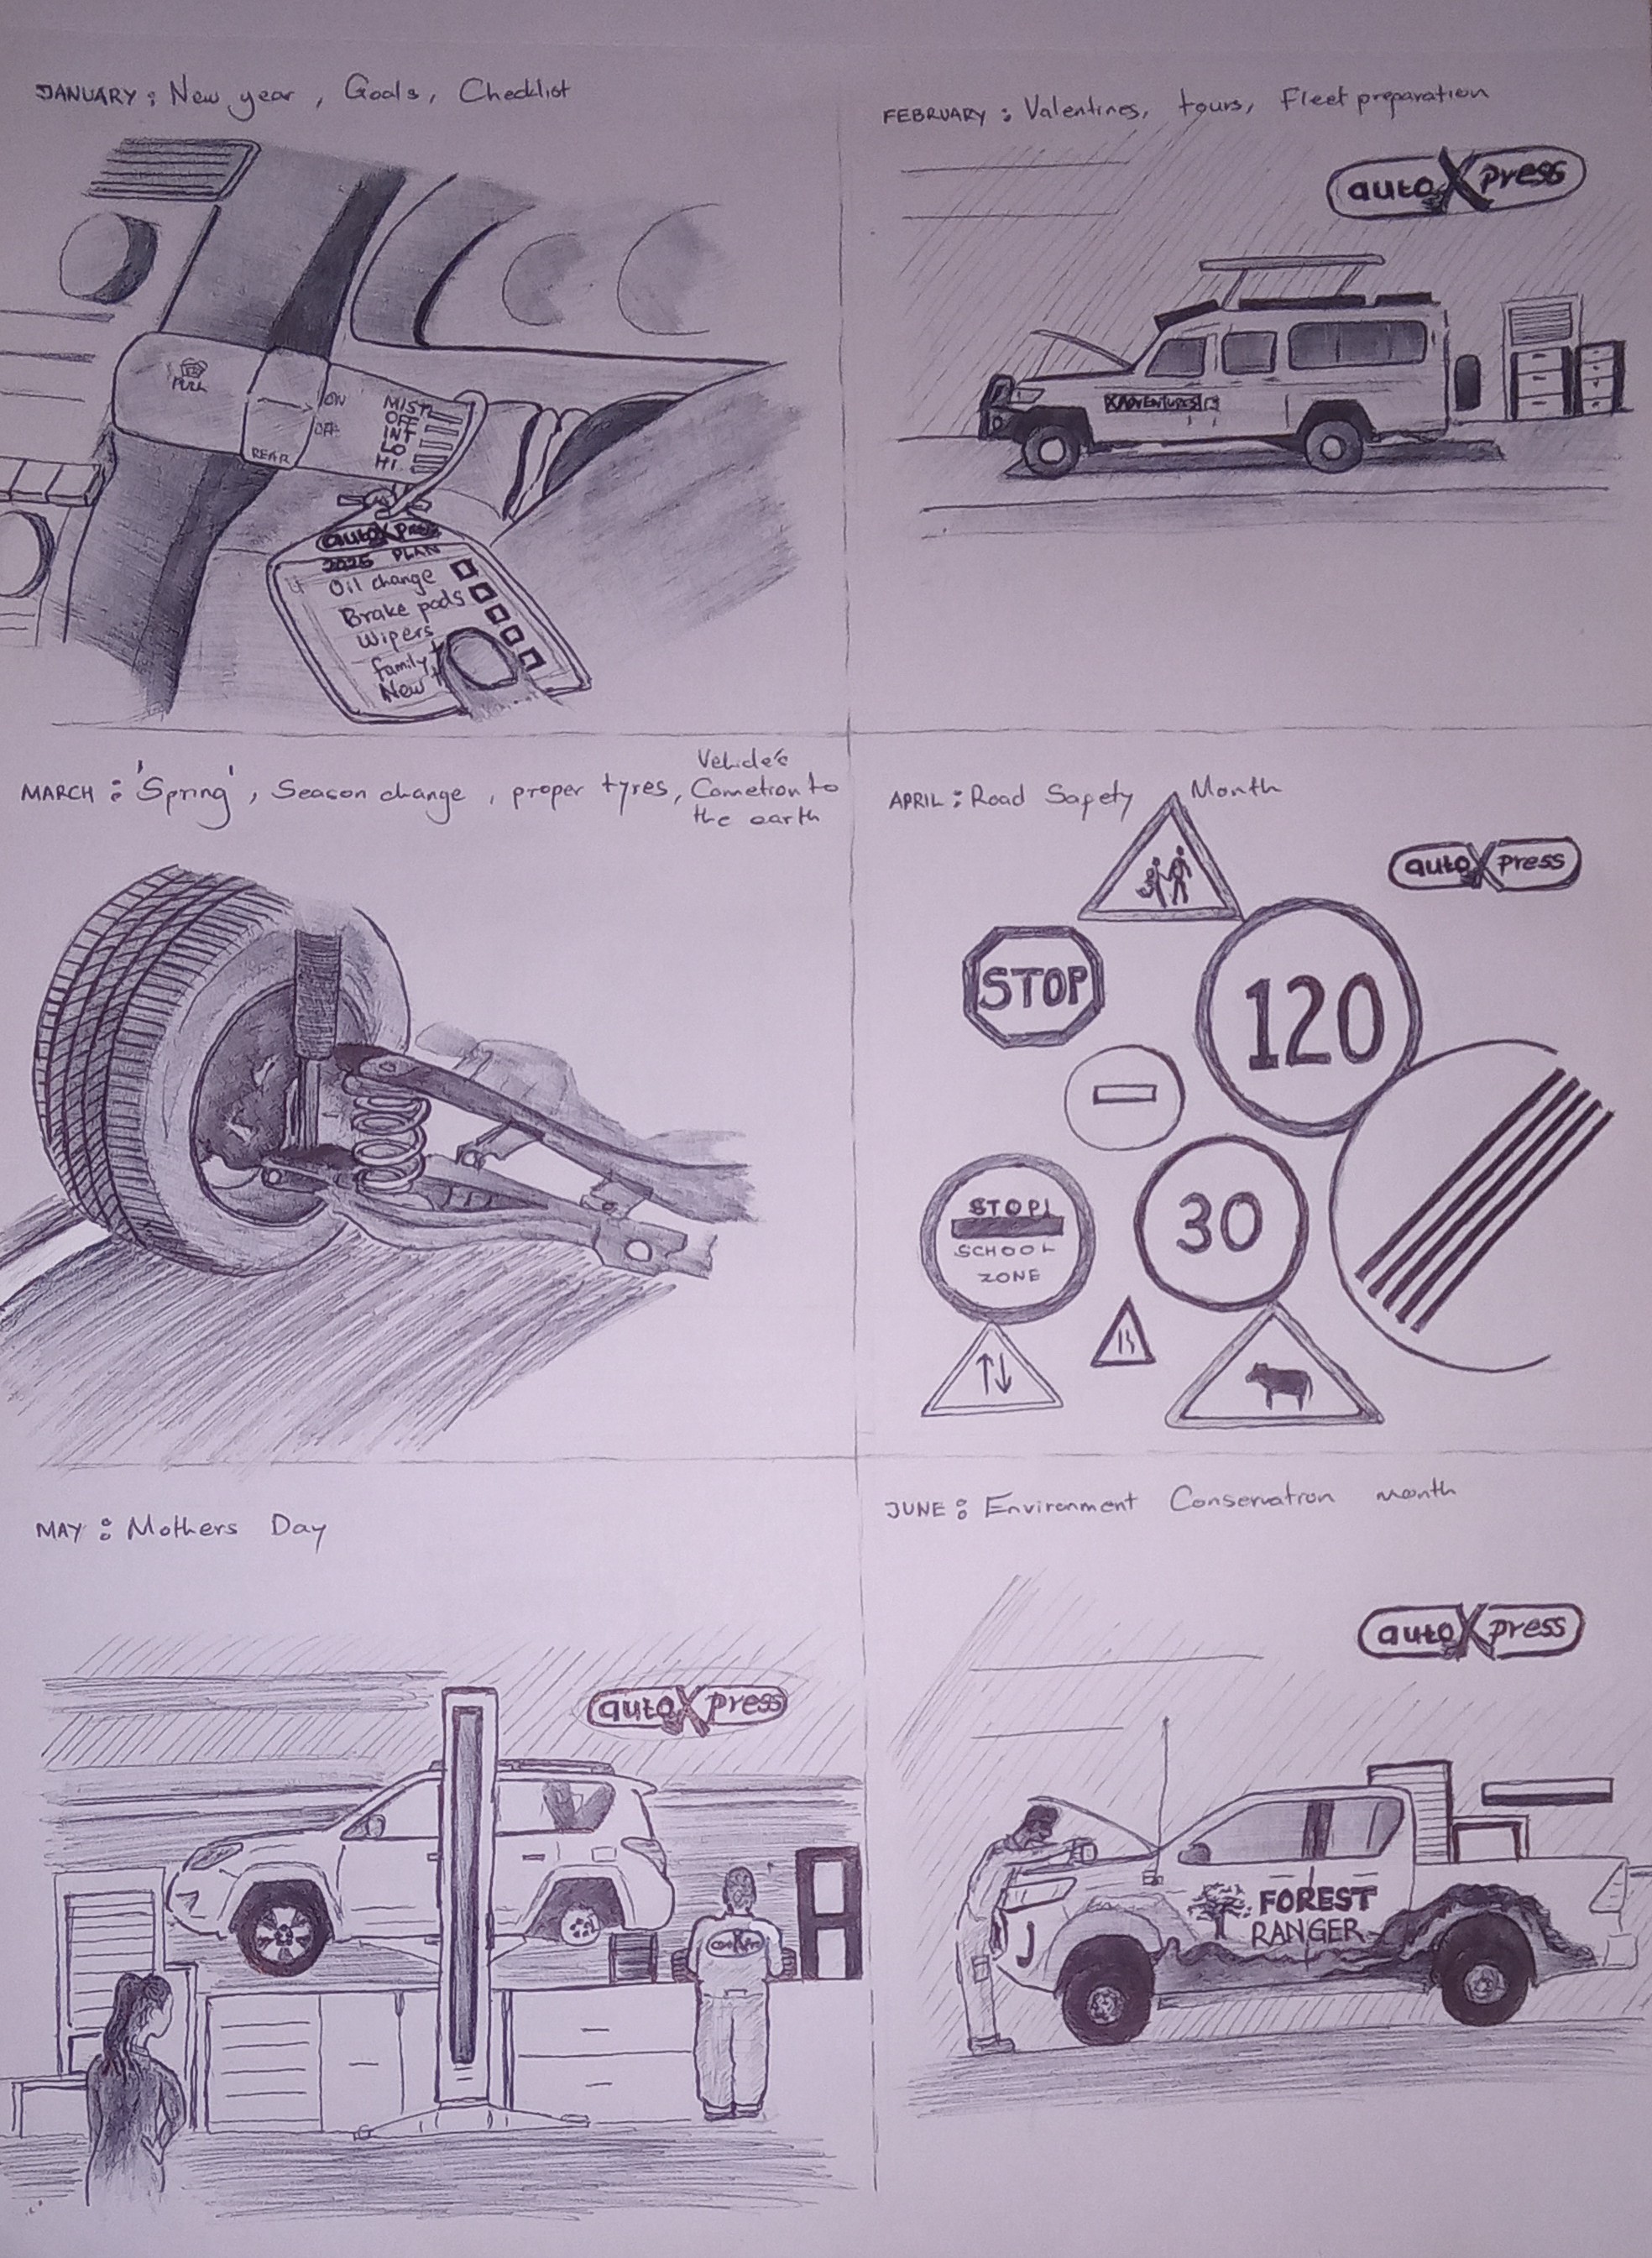 JANUARY : New year , Goals, Checklist
PULL
ON
OFF
REAR
MIST
OFF
INT
LO
HI
autoXpress
2025 PLAN
Oil change
Brake pads
Wipers
family
New
FEBRUARY : Valentines, tours, Fleet preparation
autoXpress
XADVENTURES
MARCH : 'Spring' , Season change , proper tyres,
Vehicle's
Conection to
the earth
APRIL : Road Safety Month
autoXpress
STOP
120
STOP!
SCHOOL
ZONE
30
MAY : Mothers Day
autoXpress
JUNE : Environment Conservation month
autoXpress
FOREST
RANGER